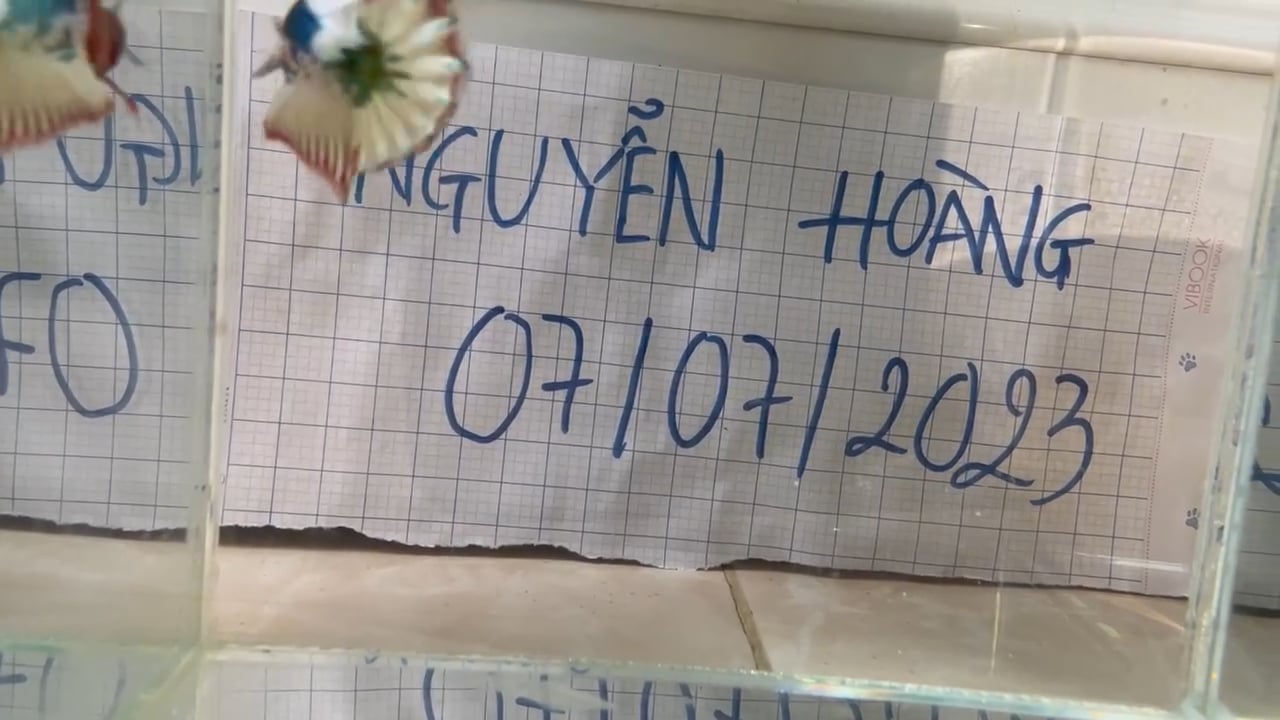 NGUYỄN HOÀNG
07/07/2023
VIBOOK
INTERNATIONAL
FO